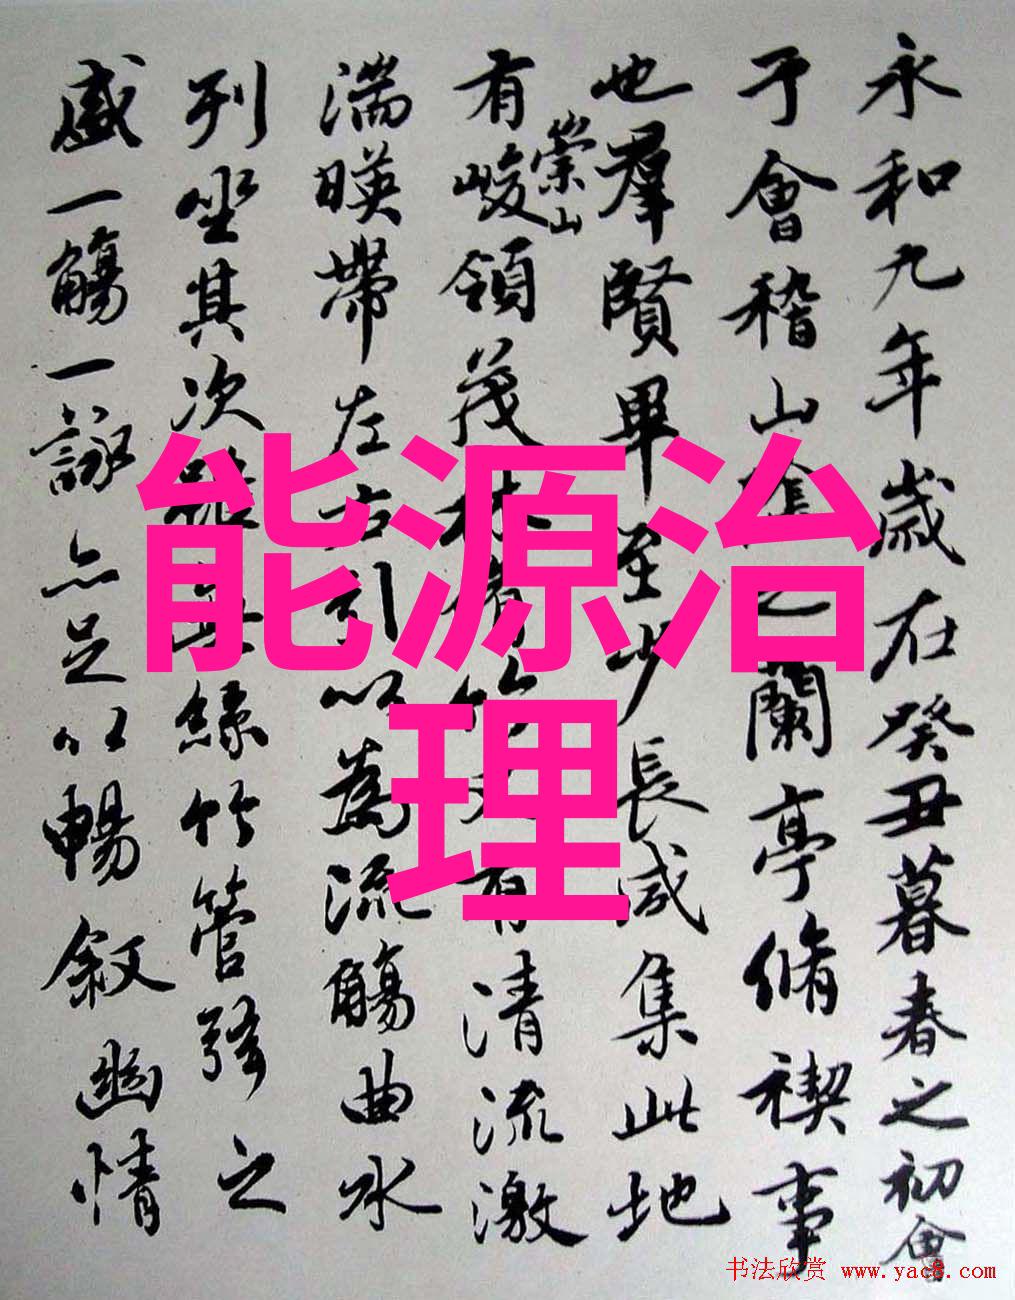 永和九年歲在癸丑暮春之初會
于會稽山陰之蘭亭脩禊事
也羣賢畢至少長咸集此地
有崇山峻領茂林脩竹又有清流激
湍暎帶左右引以為流觴曲水
列坐其次雖無絲竹管弦之
盛一觴一詠亦足以暢敘幽情
能源治
理
书法欣赏 www.yac8.com